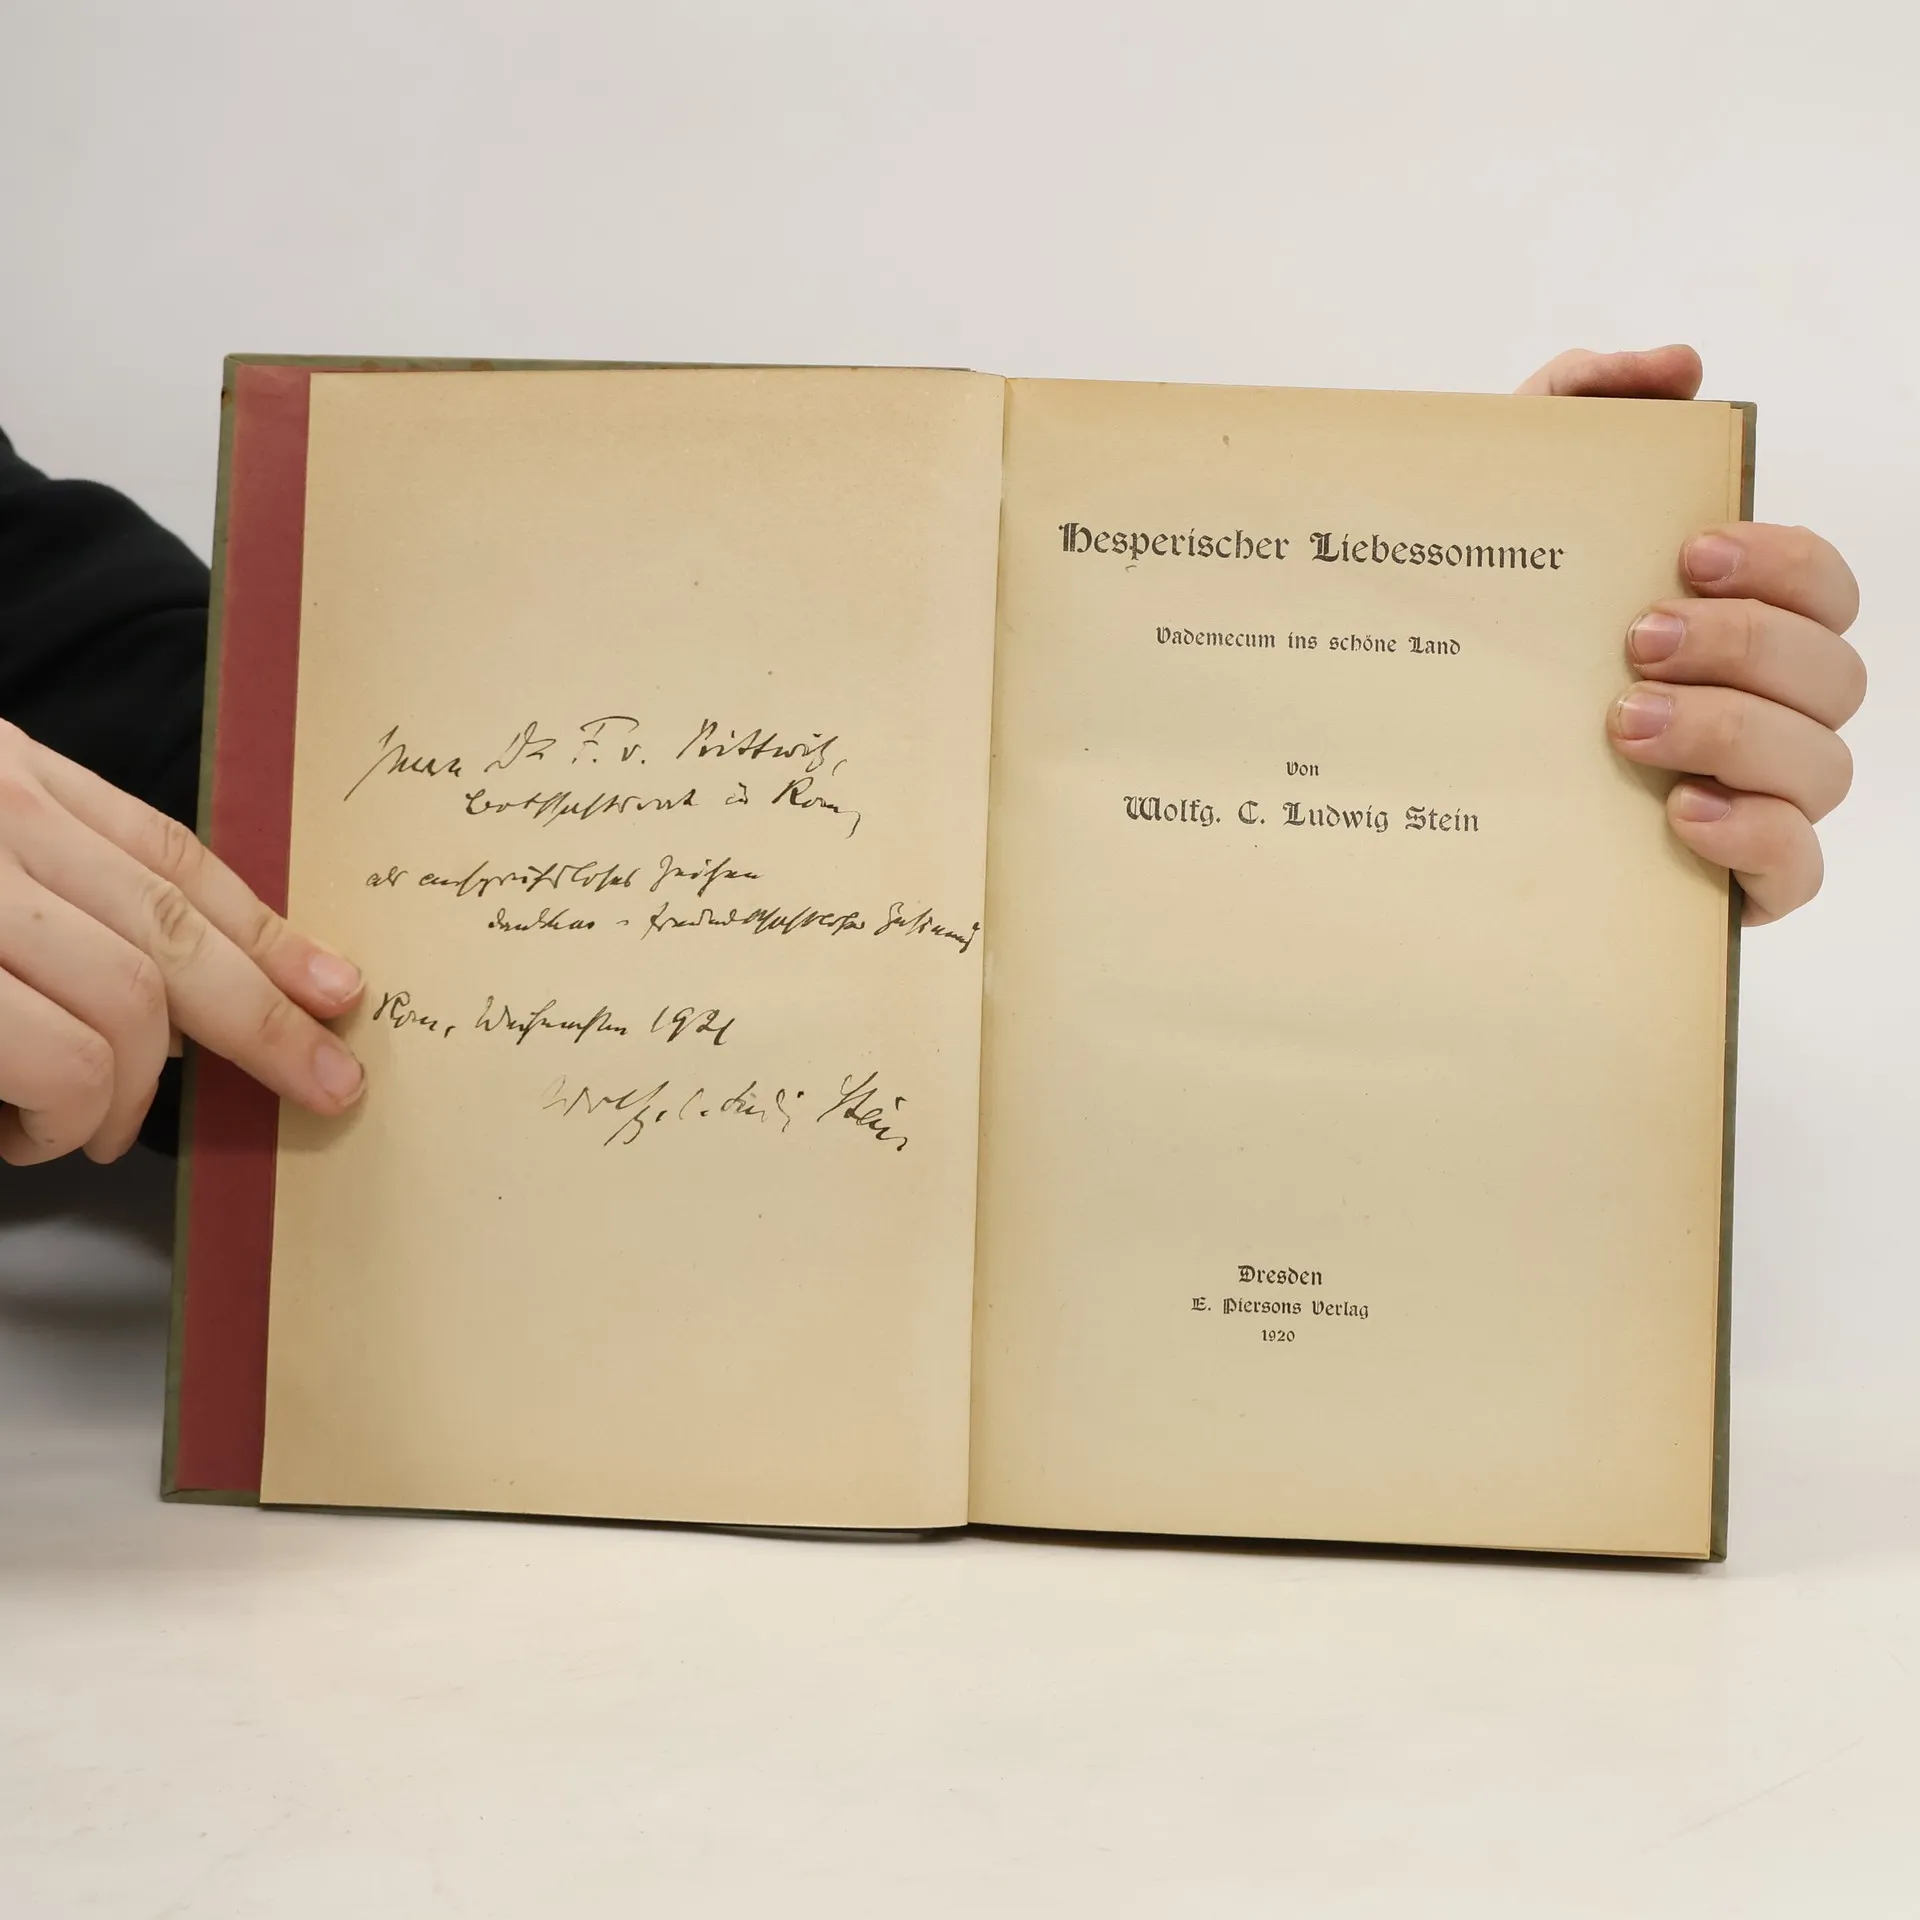 Herrn Dr F. v. Prittwitz,
Botschaftsrat in Rom,
als anspruchsloses Zeichen
dankbar - freundschaftlicher Gesinnung
Rom, Weihnachten 1921
Wolfg. C. Ludwig Stein
Hesperischer Liebessommer
Vademecum ins schöne Land
Von
Wolfg. C. Ludwig Stein
Dresden
E. Piersons Verlag
1920